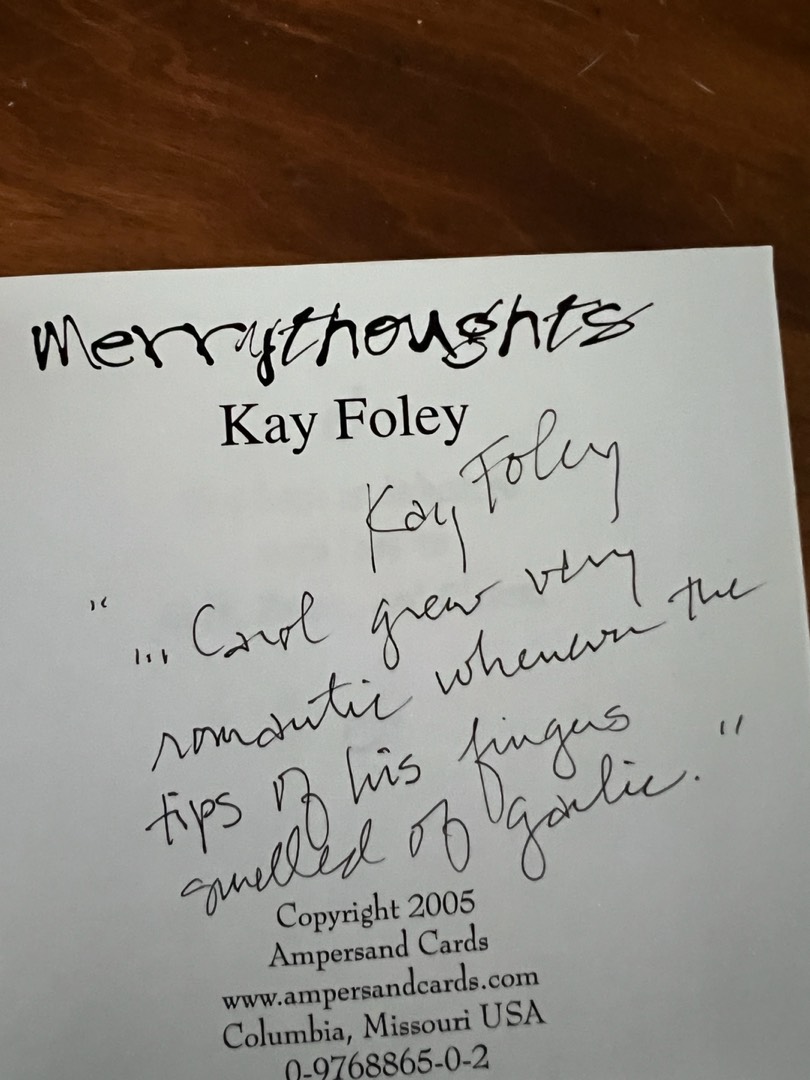 Merrythoughts
Kay Foley
Kay Foley
"... Carol grew very
romantic whenever the
tips of his fingers
smelled of garlic."
Copyright 2005
Ampersand Cards
www.ampersandcards.com
Columbia, Missouri USA
0-9768865-0-2